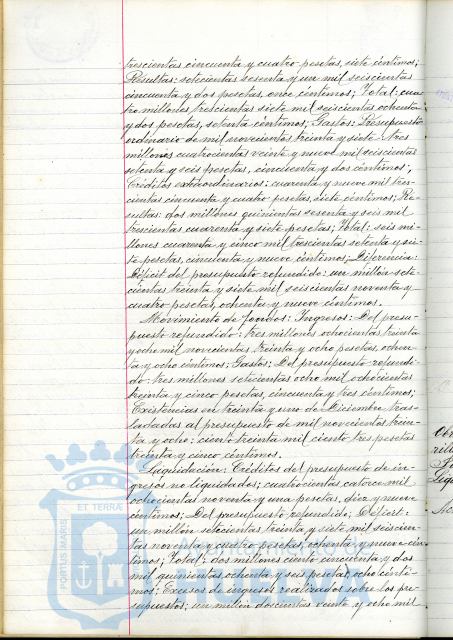 trescientas cincuenta y cuatro pesetas, siete céntimos;
Résultas: setecientas sesenta y un mil seiscientas
cincuenta y dos pesetas, once céntimos; Total: cua-
tro millones, trescientas siete mil seiscientas ochenta
y dos pesetas, setenta céntimos; Gastos: Presupuesto
ordinario de mil novecientos treinta y siete: tres
millones cuatrocientas veinte y nueve mil seiscientas
setenta y seis pesetas, cincuenta y dos céntimos;
Créditos extraordinarios: cuarenta y nueve mil tres-
cientas cincuenta y cuatro pesetas, siete céntimos; Re-
sultas: dos millones quinientas sesenta y seis mil
trescientas cuarenta y siete pesetas; Total: seis mi-
llones cuarenta y cinco mil trescientas setenta y sie-
te pesetas, cincuenta y nueve céntimos; Diferencia:
Déficit del presupuesto refundido: un millón sete-
cientas treinta y siete mil seiscientas noventa y
cuatro pesetas, ochenta y nueve céntimos.
Movimiento de fondos: Ingresos: Del presu-
puesto refundido: tres millones ochocientas treinta
y ocho mil novecientas, treinta y ocho pesetas, ochen-
ta y ocho céntimos; Gastos: Del presupuesto refundi-
do: tres millones setecientas ocho mil ochocientas
treinta y cinco pesetas, cincuenta y tres céntimos;
Existencias en treinta y uno de Diciembre tras-
ladadas al presupuesto de mil novecientos trein-
ta y ocho: ciento treinta mil ciento tres pesetas
treinta y cinco céntimos.
Liquidación: Créditos del presupuesto de in-
gresos no liquidados; cuatrocientas catorce mil
ochocientas noventa y una pesetas, diez y nueve
céntimos; Del presupuesto refundido; Déficit:
un millón setecientas treinta y siete mil seiscien-
tas noventa y cuatro pesetas, ochenta y nueve cén-
timos; Total: dos millones ciento cincuenta y dos
mil quinientas ochenta y seis pesetas, ocho cénti-
mos; Excesos de ingresos realizados sobre los pre-
supuestos; un millón doscientas veinte y ocho mil
ET TERRÆ
PORTUS MARIS